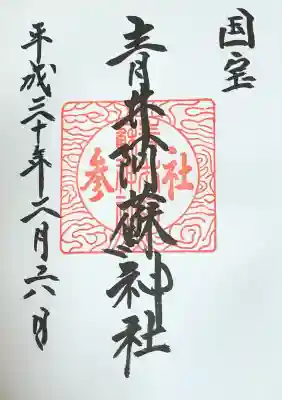 国宝
青井阿蘇神社
平成三十年二月二六日
社
参